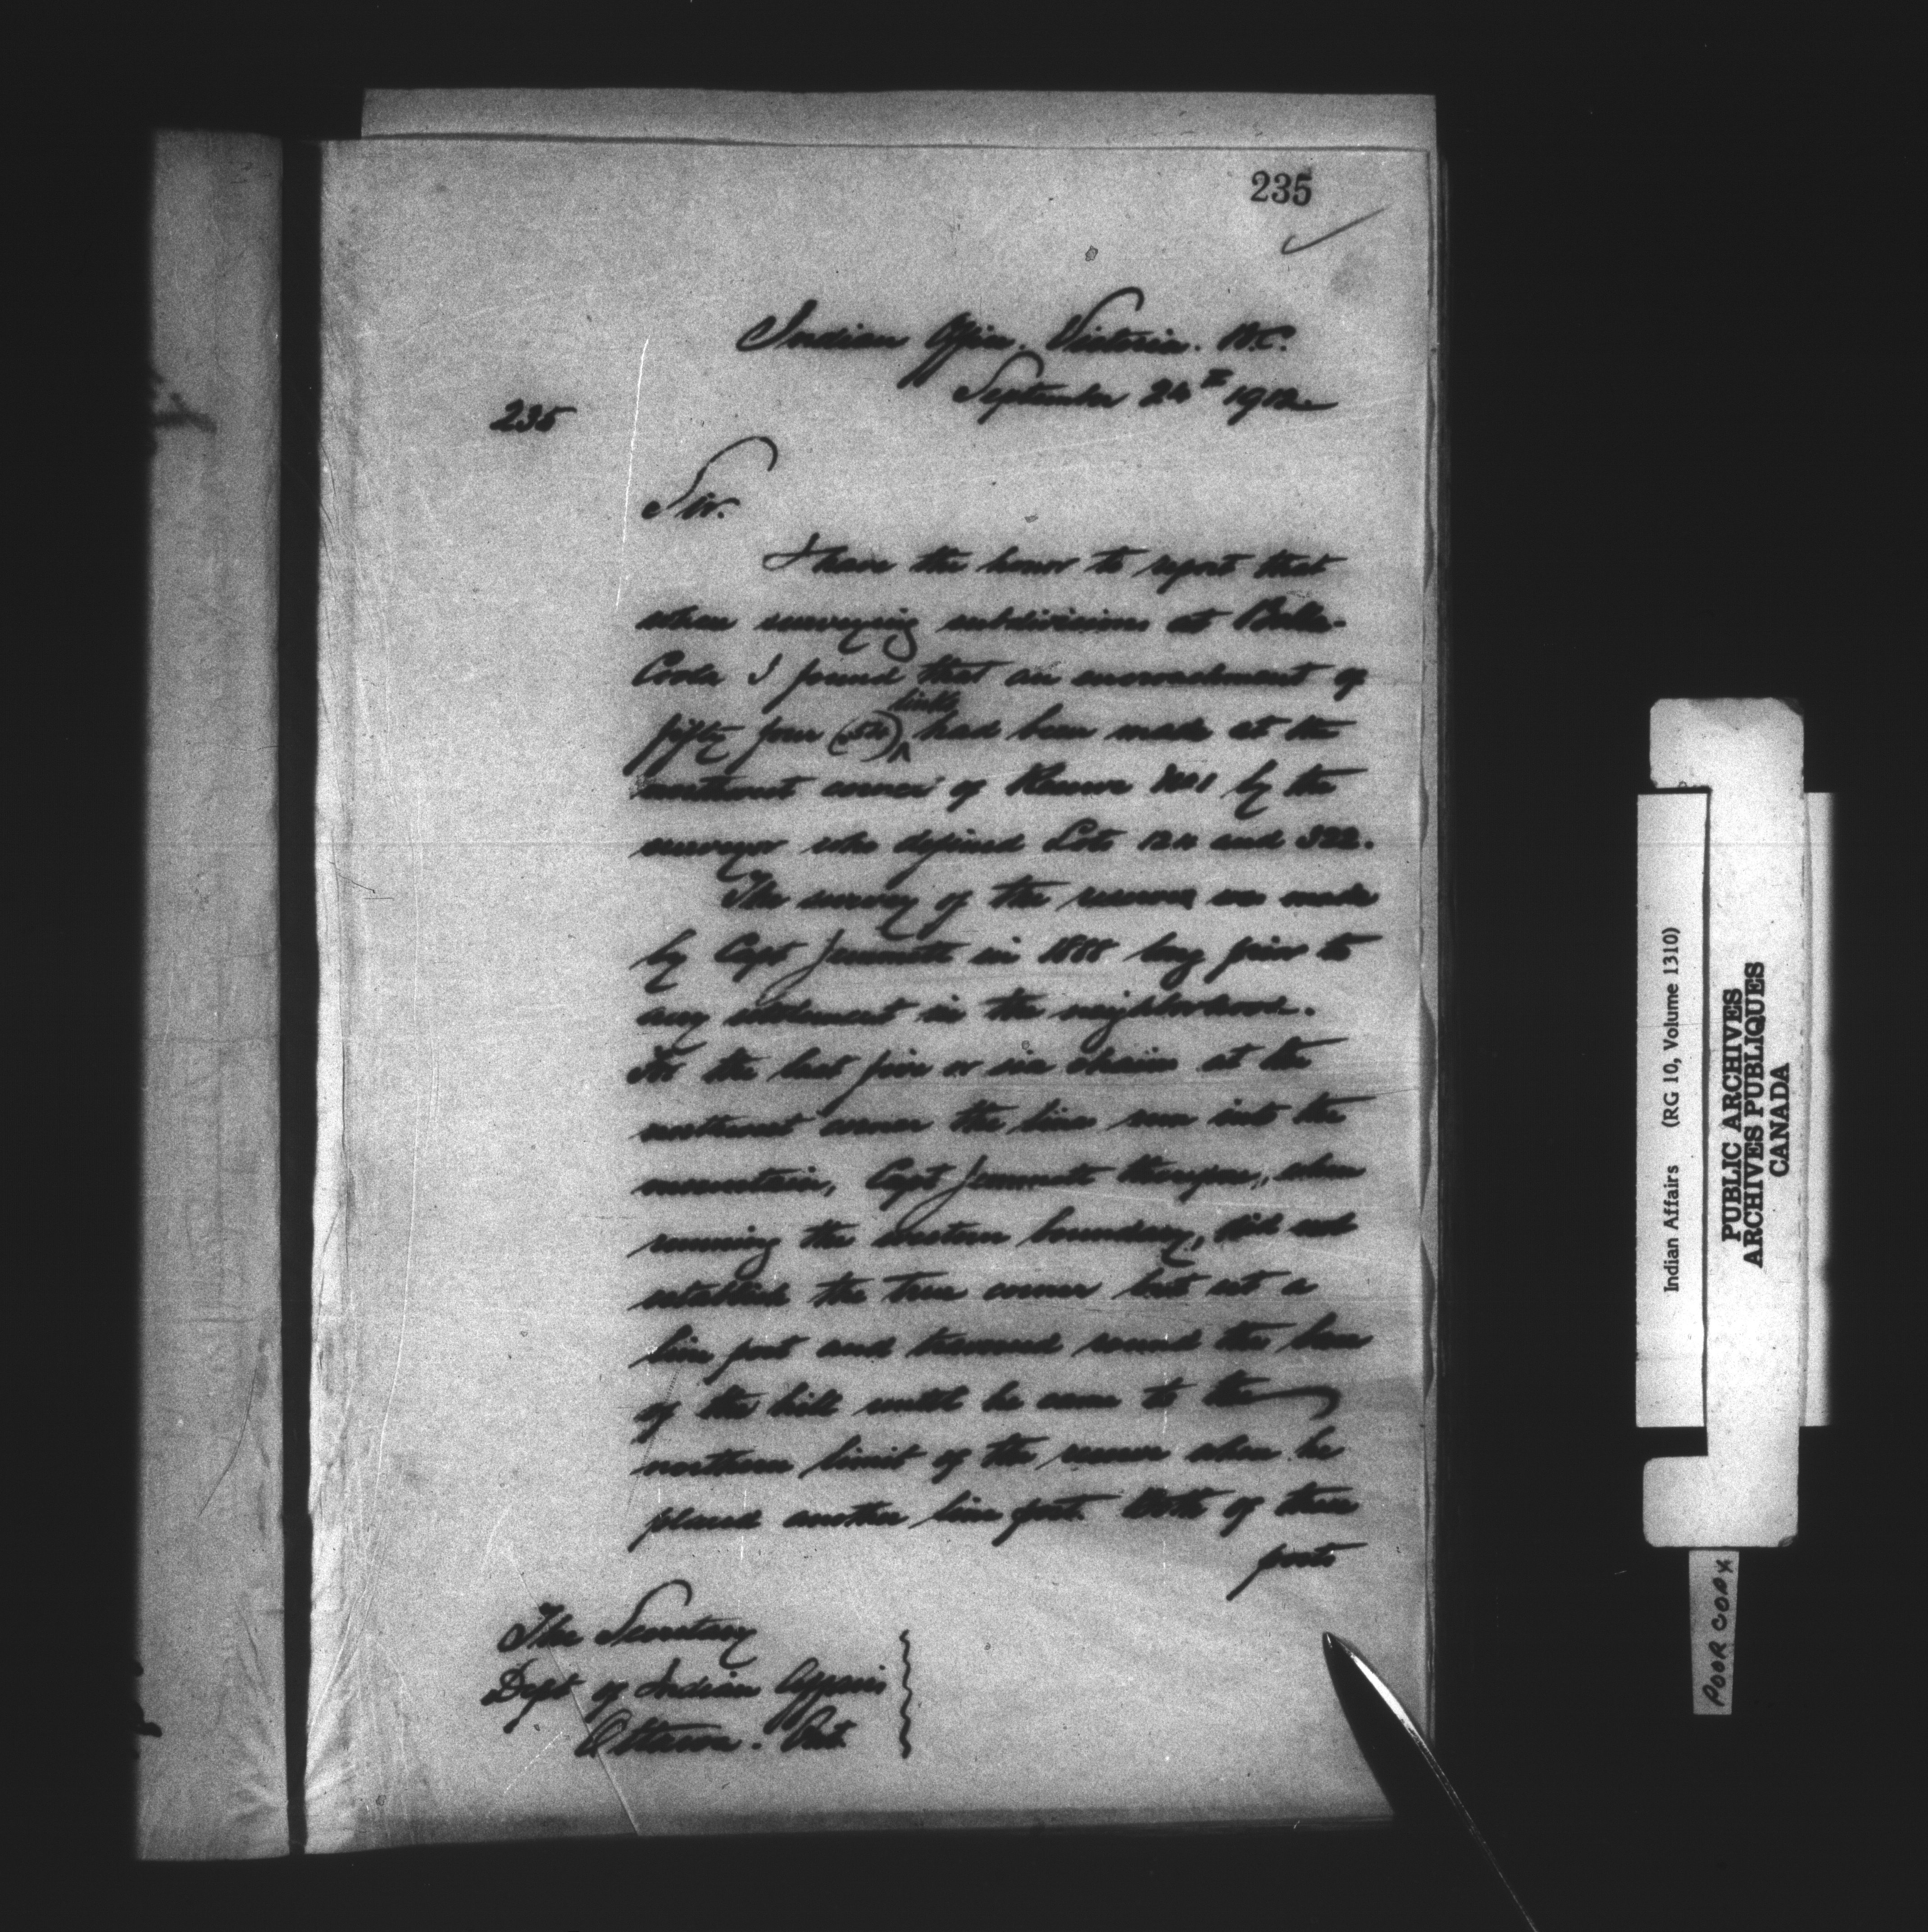 235
Indian Office. Victoria. B.C.
September 24th 1912
235
Sir.
I have the honor to report that
when surveying subdivisions at Bella-
Coola I found that an encroachment of
fifty four (54) links had been made at the
northwest corner of Reserve No 1 by the
surveyor who defined Lots 124 and 322.
The survey of the reserve was made
by Capt Jemmett in 1888 long prior to
any settlement in the neighborhood.
For the last five or six chains at the
northwest corner the line runs into the
mountain, Capt Jemmett therefore, when
running the western boundary, did not
establish the true corner but set a
line post and traversed round the base
of the hill until he came to the
northern limit of the reserve when he
placed another line post. Both of these
posts
The Secretary
Dept of Indian Affairs
Ottawa. Ont.
Indian Affairs (RG 10, Volume 1310)
PUBLIC ARCHIVES
ARCHIVES PUBLIQUES
CANADA
POOR COPY